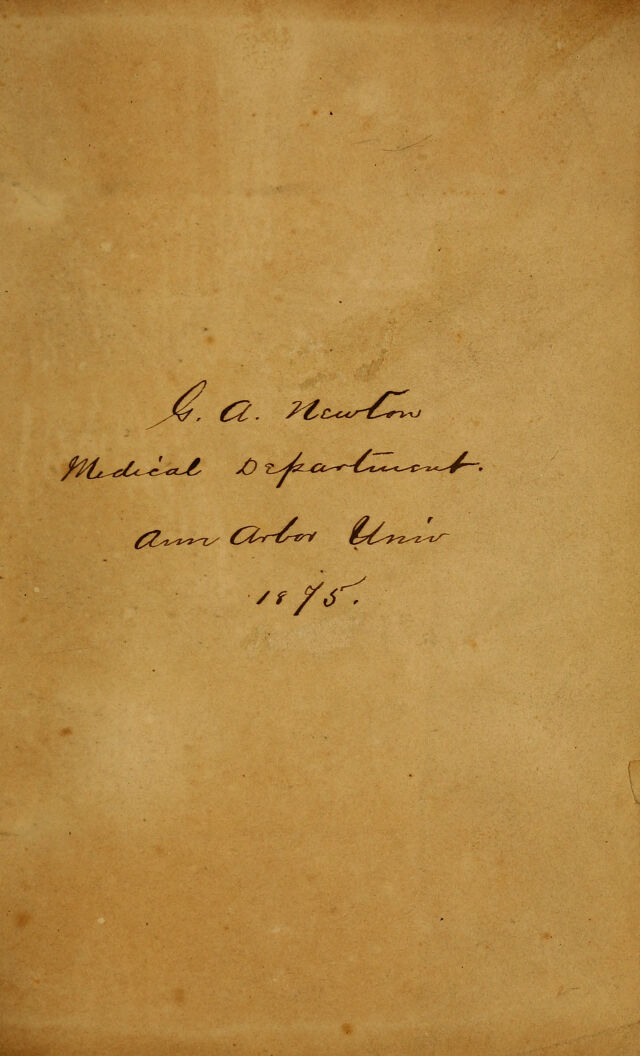 G. A. Newton
Medical Department.
Ann Arbor Univ
1875.